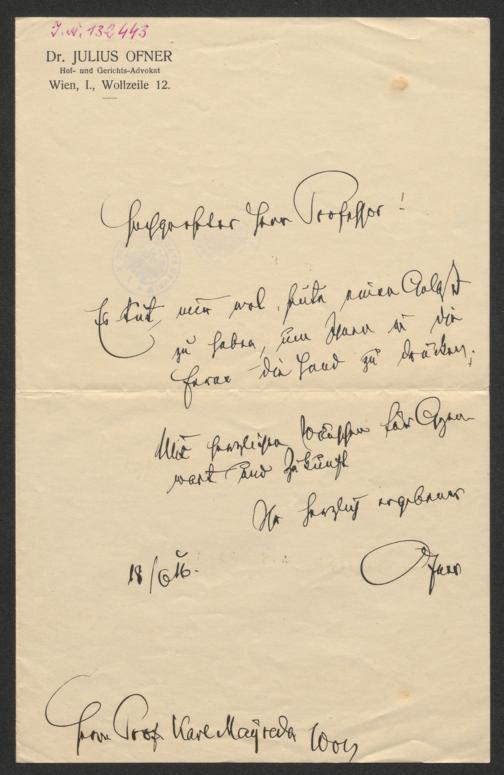 I.N. 132443
Dr. JULIUS OFNER
Hof- und Gerichts-Advokat
Wien, I., Wollzeile 12.
Hochgeehrter Herr Professor!
Es tut mir wol, heute einen Anlaß
zu haben, um Ihnen in die
Ferne die Hand zu drücken.
Mit herzlichen Wünschen für Gegen-
wart und Zukunft
Ihr herzlich ergebener
Ofner
18/6 16.
Herrn Prof. Karl Mayreder Wien